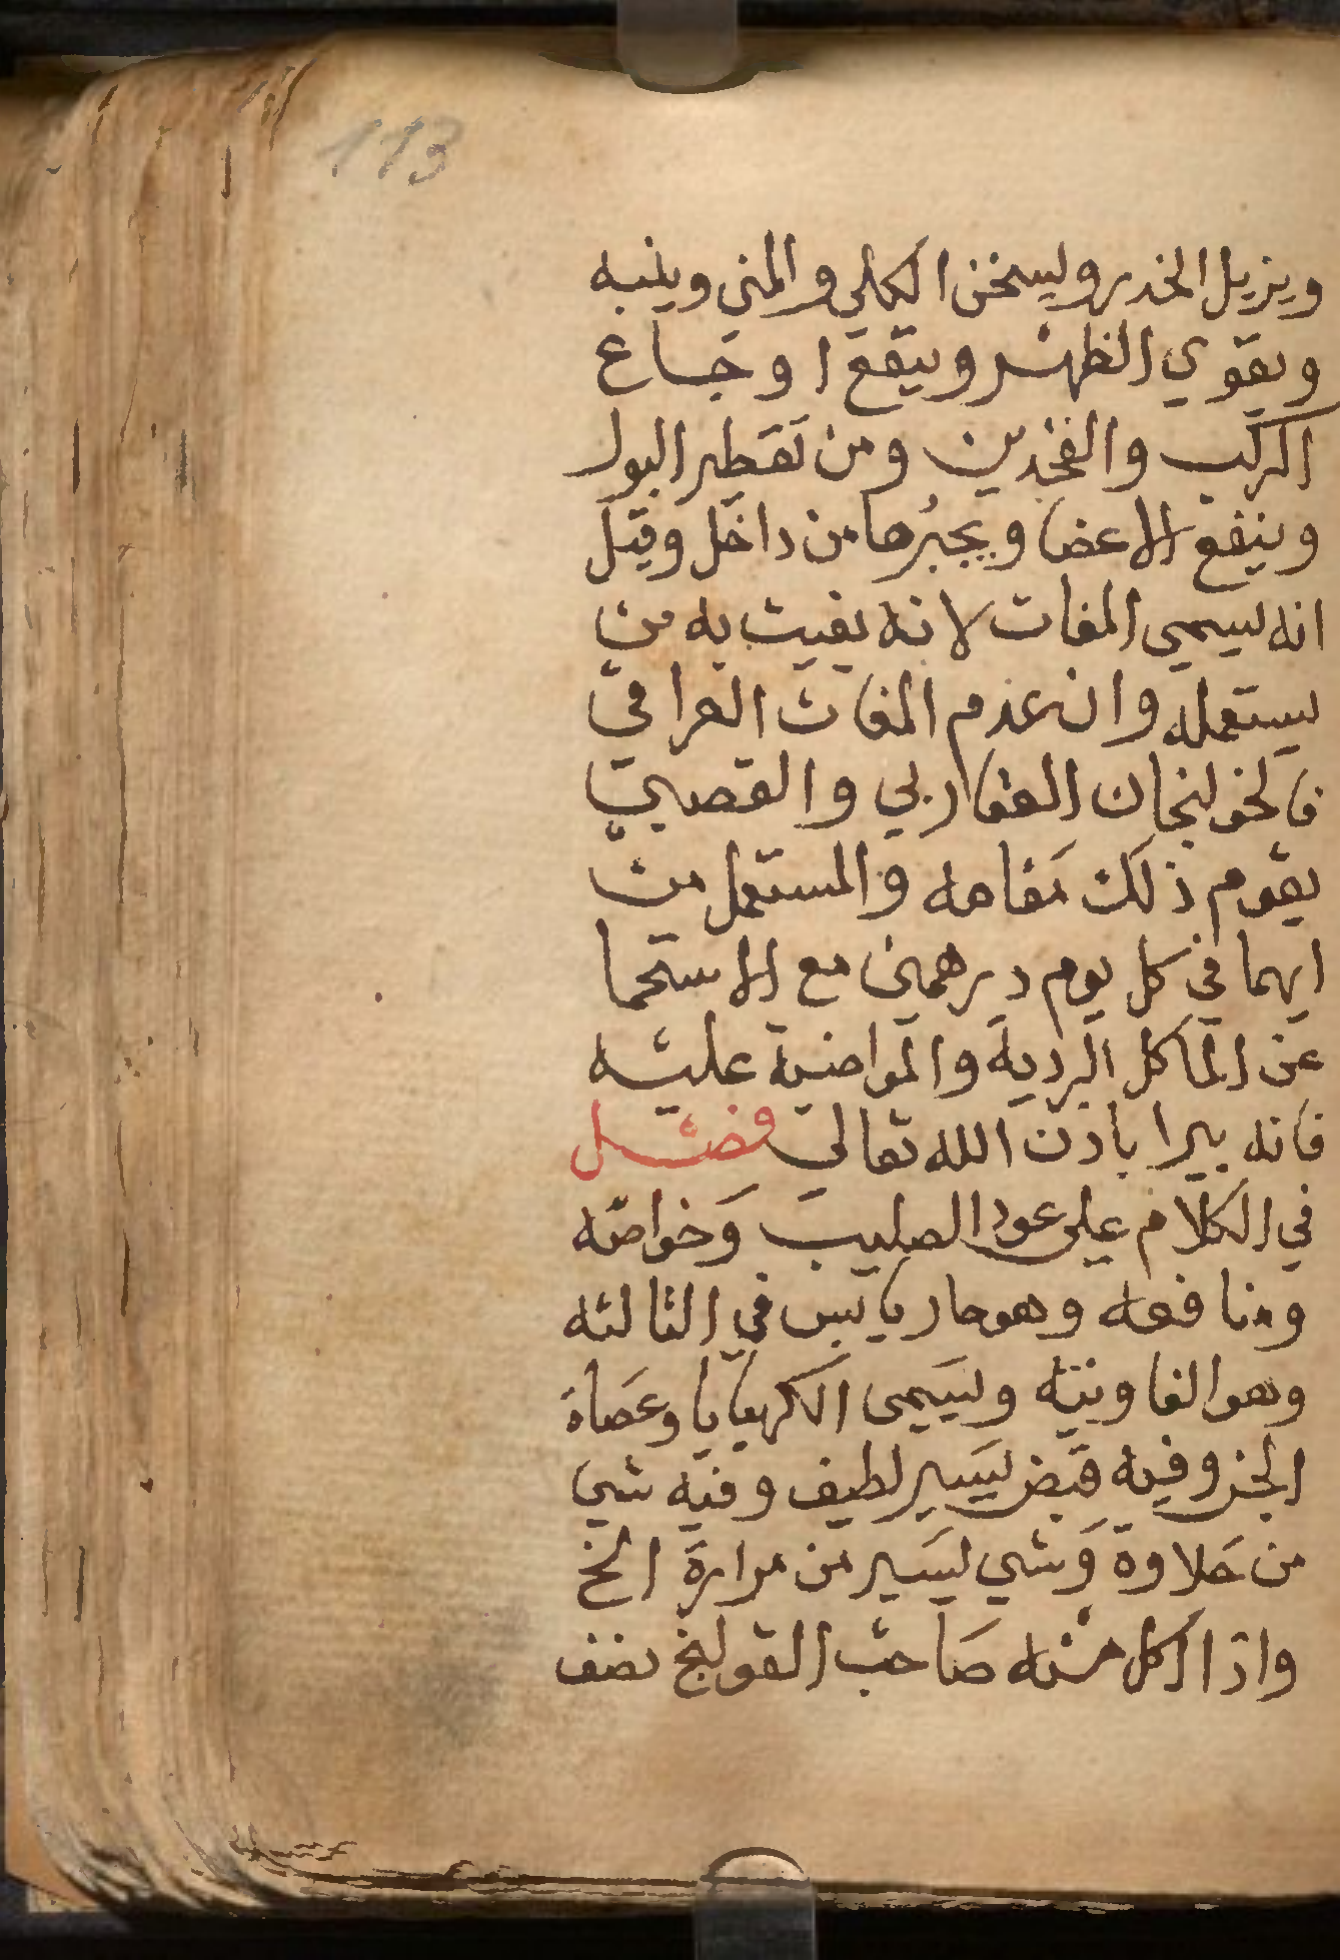 113
ويزيل الخدر ويسخن الكلي والمني وينبه
ويقوي الظهر وينفع اوجاع
الركب والفخدين ومن تقطير البول
وينفع الاعضا ويجبرها من داخل وقيل
انه يسمي المغات لانه يغيث به من
يستعمله وان عدم المغاث العراقي
فالخولنجان العقاربي والقصبي
يقوم ذلك مقامه والمستعمل من
ايهما في كل يوم درهمين مع الاستحما
عن الماكل الردية والمواضبة عليه
فانه يبرا باذن الله تعالي فصل
في الكلام علي عود الصليب وخواصه
ومنافعه وهو حار يابس في الثالثه
وهو الفاونيه ويسمى الكهيانا وعصاة
الجن وفيه قبض يسير لطيف وفيه شي
من حلاوة وشي يسير من مرارة الخ
واذا اكل منه صاحب القولنج نصف